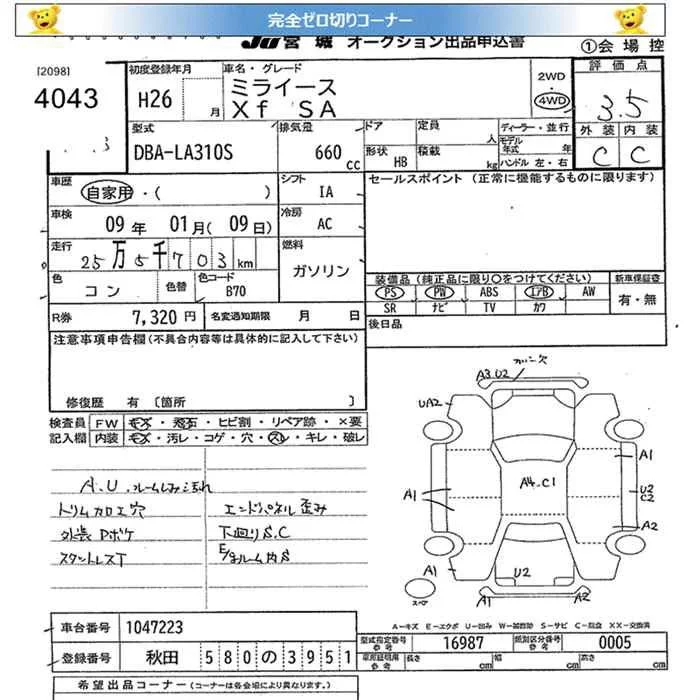 完全ゼロ切りコーナー
JU宮城 オークション出品申込書
①会場控
[2098]
4043
初度登録年月
H26 月
車名・グレード
ミライース
Xf SA
2WD
4WD
評価点
3.5
外装 内装
C C
型式
DBA-LA310S
排気量
660 cc
ドア
定員 人
形状 HB
積載 kg
ディーラー・並行
モデル年式 年
ハンドル 左・右
車歴
自家用・( )
シフト
IA
セールスポイント (正常に機能するものに限ります)
車検
09年 01月(09日)
冷房
AC
走行
25万5千703km
燃料
ガソリン
色
コン
色替
色コード
B70
装備品(純正品に限り○をつけてください)
新車保証書
PS PW ABS エアB AW
有・無
SR ナビ TV カワ
R券 7,320円
名変通知期限 月 日
後日品
注意事項申告欄(不具合内容等は具体的に記入して下さい)
修復歴 有 [箇所 ]
検査員
記入欄
FW キズ・飛石・ヒビ割・リペア跡・×要
内装 キズ・汚レ・コゲ・穴・スレ・キレ・破レ
A.U.ルームしみ汚れ
トリム加工穴
エンドパネル歪み
外装Pボケ
下廻りS.C
E/gルーム内S
A3 U2
UA2
A1
A4.C1
A1
U2
C2
A2
A1
U2
A1
A2
スペア
A-キズ E-エクボ U-凹み W-補修跡 S-サビ C-腐食 XX-交換済
車台番号
1047223
登録番号
秋田 580の3951
型式指定番号
参考
16987
類別区分番号
参考
0005
車庫証明用
参考
長さ cm
幅 cm
高さ cm
希望出品コーナー(コーナーは各会場により異なります。)